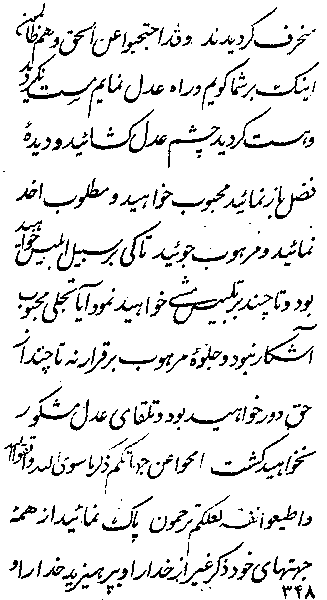 منحرف گردیدند و قد احتجبوا عن الحق و هم ظالمین
اینک بر شما گویم و راه عدل نمایم مست نگردید
و هست گردید چشم عدل گشائید و دیدهٔ
فضل باز نمائید محبوب خواهید و مطلوب اخذ
نمائید و مرهوب جوئید تا کی بر سبیل ابلیس خواهید
بود و تا چند بر تلبیس مشی خواهید نمود آیا تجلی محبوب
آشکار نبود و جلوهٔ مرهوب برقرار نه تا چند از
حق دور خواهید بود و تلقای عدل مشکور
نخواهید گشت امحوا عن جهاتکم ذکر ما سوی الله و اتقوا الله
و اطیعوا لعلکم ترحمون پاک نمائید از همهٔ
جهتهای خود ذکر غیر از خدا را و بپرهیزید خدا را و
۳۴۸